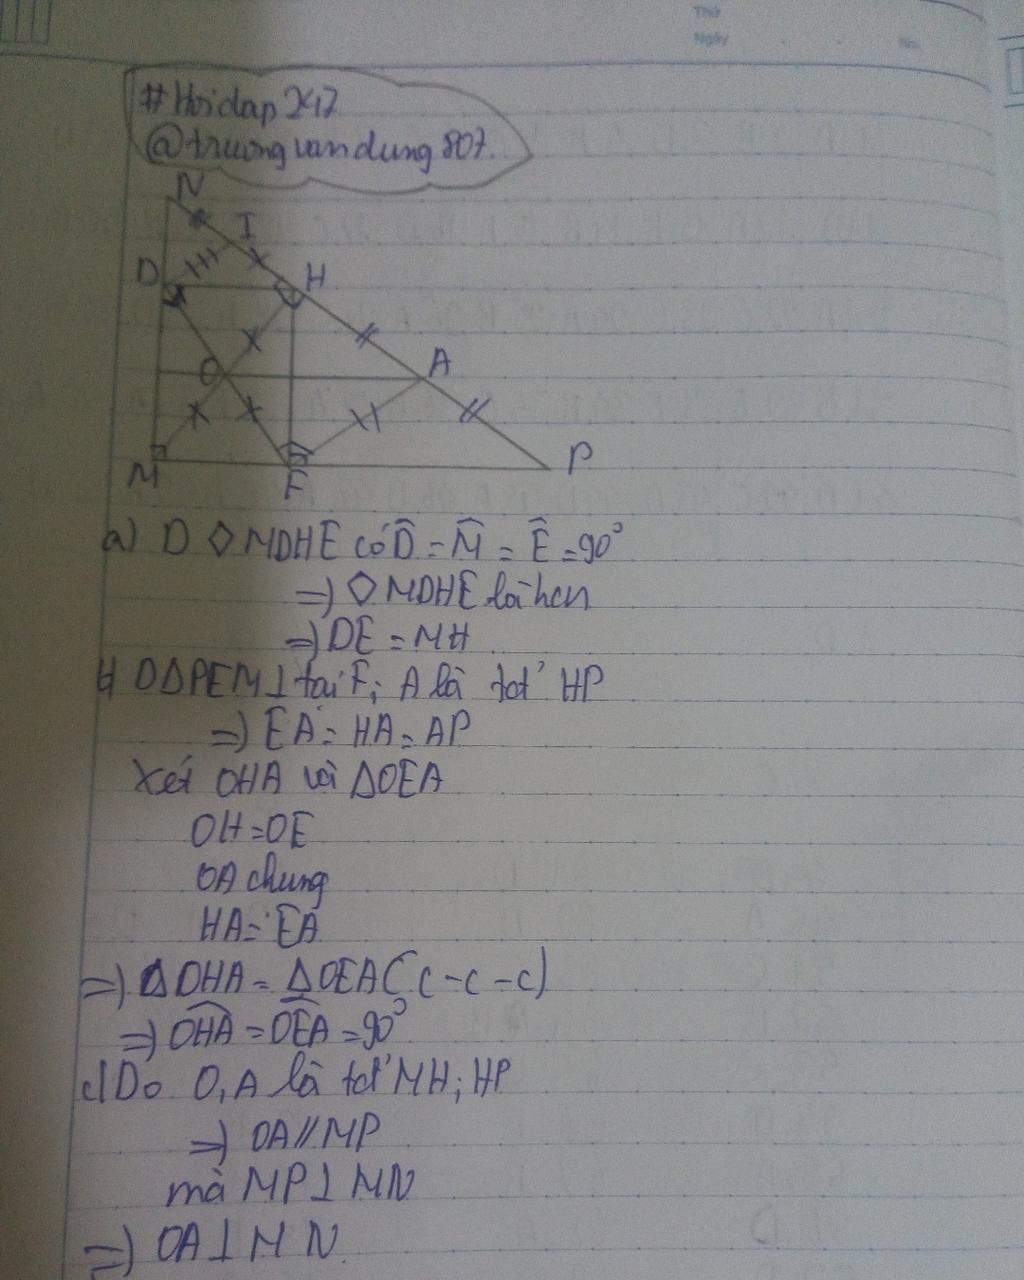 Thứ
Ngày
No.
#Hoidap247
@truongvandung807.
N
I
D
H
O
A
M
E
P
a) D ◇MDHE có D̂ = M̂ = Ê = 90°
=) ◇MDHE là hcn
=) DE = MH
b) D ΔPEM⊥ tại E; A là tđ HP
=) EA = HA = AP
Xét OHA và ΔOEA
OH = OE
OA chung
HA = EA
=) ΔOHA = ΔOEA (c - c - c)
=) OHA = OEA = 90°
c) Do O, A là tđ MH; HP
=) OA // MP
mà MP ⊥ MN
=) OA ⊥ MN